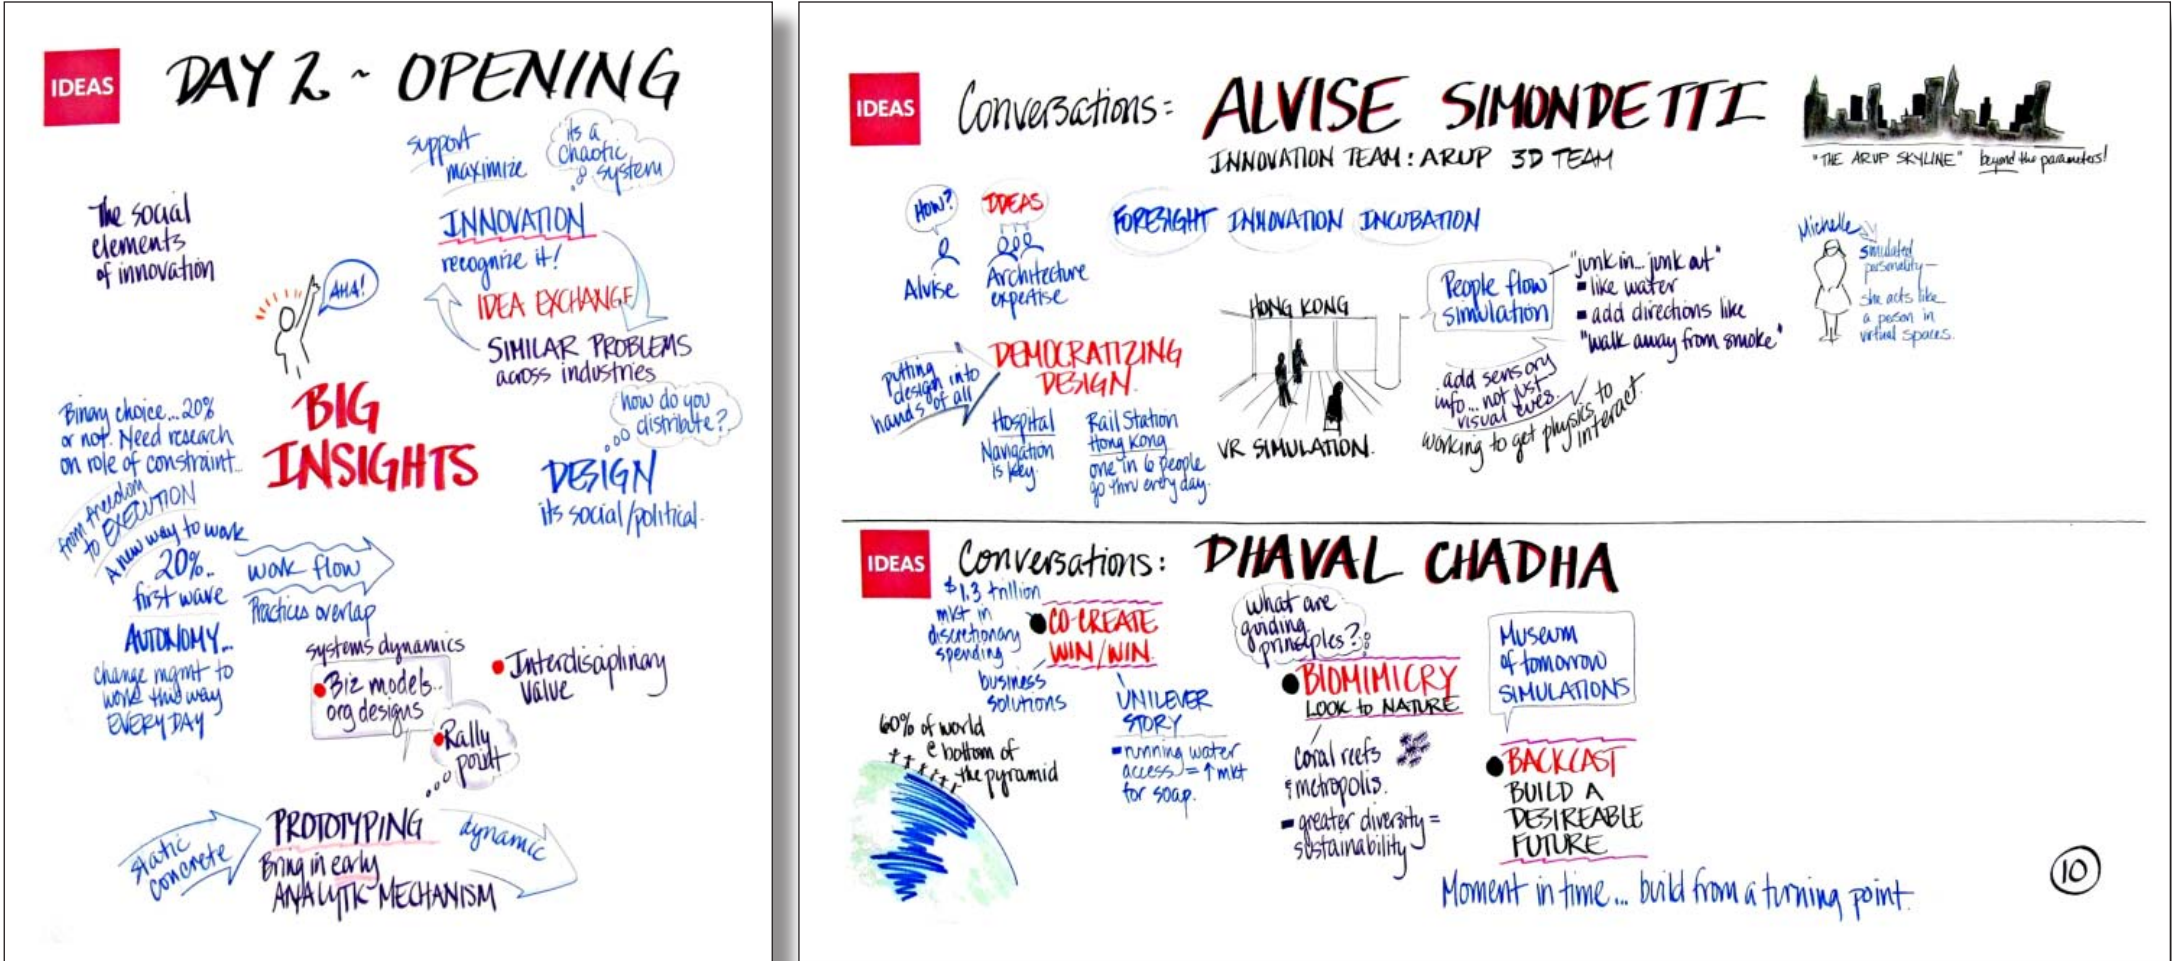 IDEAS
DAY 2 ~ OPENING
support
maximize
its a
chaotic
system
The social
elements
of innovation
INNOVATION
recognize it!
IDEA EXCHANGE
SIMILAR PROBLEMS
across industries
AHA!
BIG
INSIGHTS
how do you
distribute?
DESIGN
its social/political.
Binary choice...20%
or not. Need research
on role of constraint...
from freedom
to EXECUTION
A new way to work
20%..
first wave
work flow
Practices overlap
AUTONOMY...
change mgmt to
work this way
EVERY DAY
systems dynamics
Biz models..
org designs
Interdisciplinary
value
Rally
point
static
concrete
PROTOTYPING
Bring in early
ANALYTIC MECHANISM
dynamic
IDEAS
Conversations: ALVISE SIMONDETTI
INNOVATION TEAM: ARUP 3D TEAM
"THE ARUP SKYLINE" beyond the parameters!
HOW?
Alvise
IDEAS
Architecture
expertise
FORESIGHT INNOVATION INCUBATION
putting
design into
hands of all
DEMOCRATIZING
DESIGN.
Hospital
Navigation
is key.
Rail Station
Hong Kong
one in 6 people
go thru every day.
HONG KONG
VR SIMULATION.
People flow
simulation
"junk in... junk out"
like water
add directions like
"walk away from smoke"
add sensory
info... not just
visual eves.
working to get physics to
interact.
Michelle
simulated
personality—
she acts like
a person in
virtual spaces.
IDEAS
Conversations: DHAVAL CHADHA
$1.3 trillion
mkt in
discretionary
spending
CO-CREATE
WIN/WIN.
business
solutions
60% of world
@ bottom of
the pyramid
UNILEVER
STORY
running water
access = ↑ mkt
for soap.
what are
guiding
principles?
BIOMIMICRY
LOOK to NATURE
coral reefs
metropolis.
greater diversity =
sustainability
Museum
of tomorrow
SIMULATIONS
BACKCAST
BUILD A
DESIREABLE
FUTURE
Moment in time... build from a turning point.
10